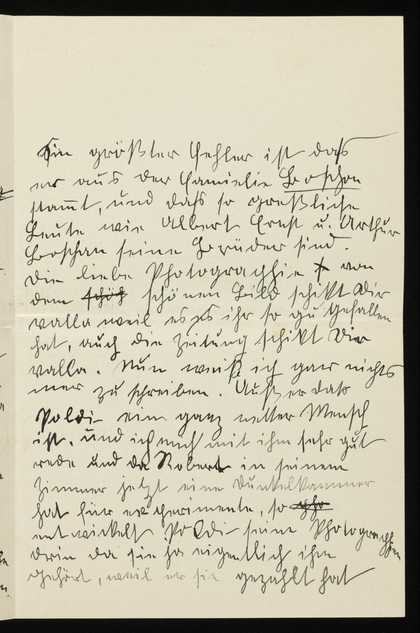 Ein größter Fehler ist daß
er aus der Familie Boschan
stam̅t, und daß so gräßliche
Leute wie Albert Ernst u. Arthur
Boschan seine Brüder sind.
Die liebe Photographie von
dem schönen Bild schikt Dir
valla weil es ihr so gu Gefallen
hat, auch die Zeitung schikt Dir
Valla. Nun weiß ich gar nichts
mer zu schreiben. Außer daß
Poldi ein ganz netter Mensch
ist, und ich mich mit ihm sehr gut
rede und da Robert in seinem
Zimmer jetzt eine Dunkelkammer
hat für experimente, so
entwickelt Poldi seine Photographien
drin da sie ja eigentlich ihm
gehört, weil er sie gezahlt hat